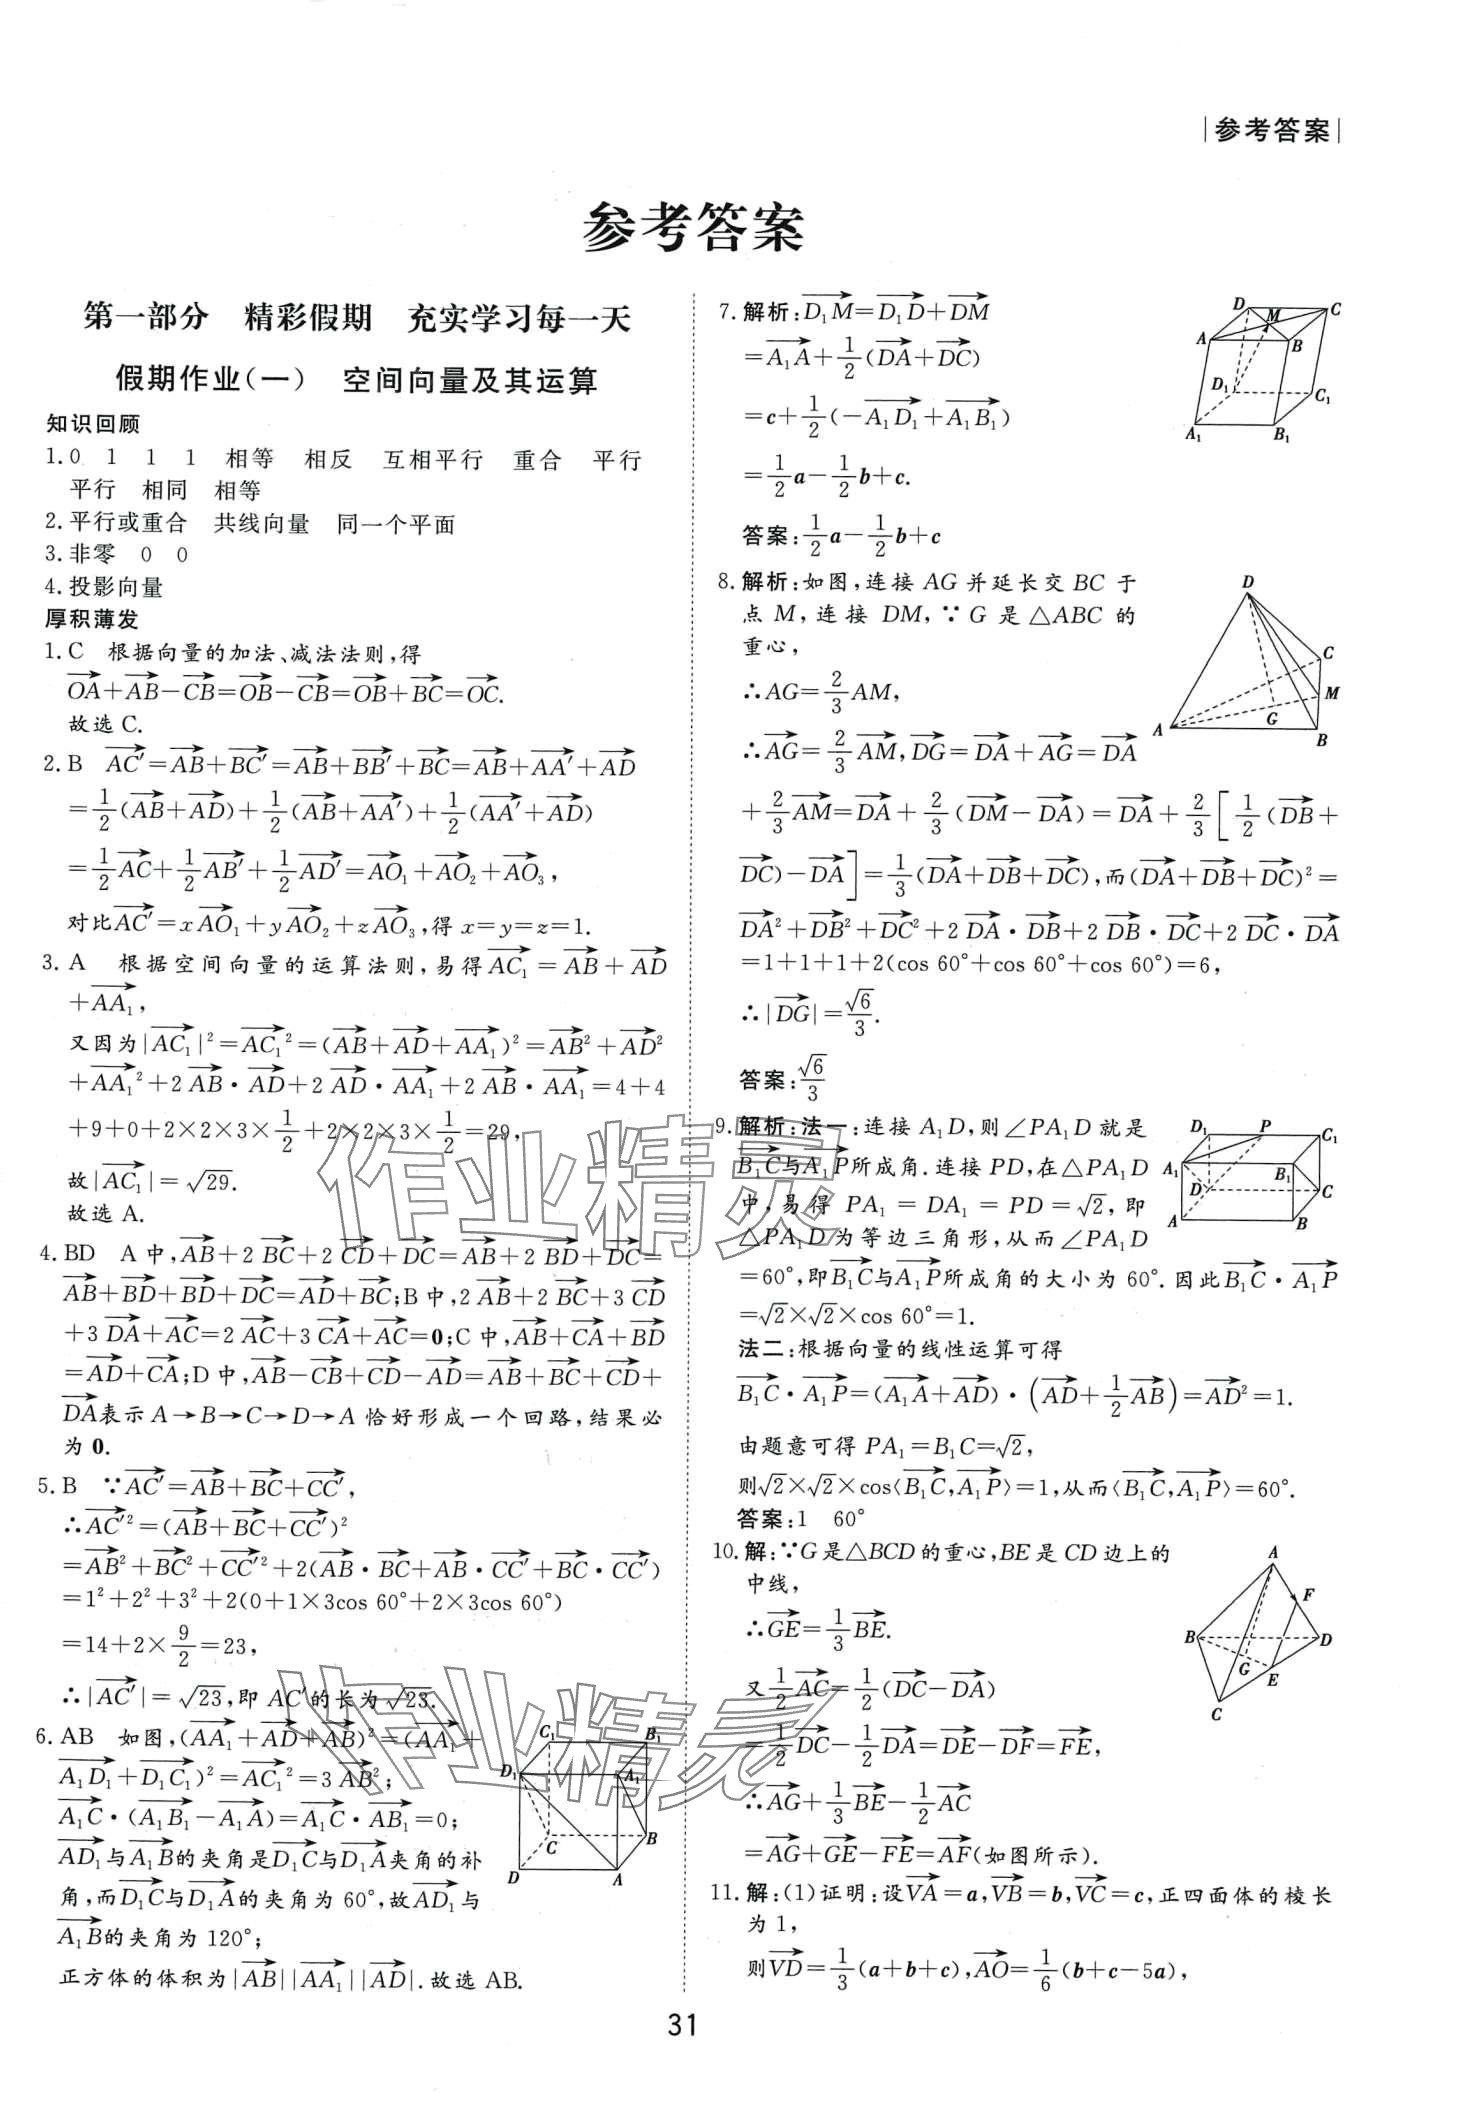 |参考答案|
参考答案
第一部分 精彩假期 充实学习每一天
假期作业(一) 空间向量及其运算
知识回顾
1.0 1 1 1 相等 相反 互相平行 重合 平行
平行 相同 相等
2.平行或重合 共线向量 同一个平面
3.非零 0 0
4.投影向量
厚积薄发
1.C 根据向量的加法、减法法则,得
$\overrightarrow{OA}+\overrightarrow{AB}-\overrightarrow{CB}=\overrightarrow{OB}-\overrightarrow{CB}=\overrightarrow{OB}+\overrightarrow{BC}=\overrightarrow{OC}$.
故选 C.
2.B $\overrightarrow{AC'}=\overrightarrow{AB}+\overrightarrow{BC'}=\overrightarrow{AB}+\overrightarrow{BB'}+\overrightarrow{BC}=\overrightarrow{AB}+\overrightarrow{AA'}+\overrightarrow{AD}$
$=\frac{1}{2}(\overrightarrow{AB}+\overrightarrow{AD})+\frac{1}{2}(\overrightarrow{AB}+\overrightarrow{AA'})+\frac{1}{2}(\overrightarrow{AA'}+\overrightarrow{AD})$
$=\frac{1}{2}\overrightarrow{AC}+\frac{1}{2}\overrightarrow{AB'}+\frac{1}{2}\overrightarrow{AD'}=\overrightarrow{AO_1}+\overrightarrow{AO_2}+\overrightarrow{AO_3}$,
对比$\overrightarrow{AC'}=x\overrightarrow{AO_1}+y\overrightarrow{AO_2}+z\overrightarrow{AO_3}$,得 x=y=z=1.
3.A 根据空间向量的运算法则,易得$\overrightarrow{AC_1}=\overrightarrow{AB}+\overrightarrow{AD}$
$+\overrightarrow{AA_1}$,
又因为$|\overrightarrow{AC_1}|^2=\overrightarrow{AC_1}^2=(\overrightarrow{AB}+\overrightarrow{AD}+\overrightarrow{AA_1})^2=\overrightarrow{AB}^2+\overrightarrow{AD}^2$
$+\overrightarrow{AA_1}^2+2\overrightarrow{AB}\cdot\overrightarrow{AD}+2\overrightarrow{AD}\cdot\overrightarrow{AA_1}+2\overrightarrow{AB}\cdot\overrightarrow{AA_1}=4+4$
$+9+0+2×2×3×\frac{1}{2}+2×2×3×\frac{1}{2}=29$,
故$|\overrightarrow{AC_1}|=\sqrt{29}$.
故选 A.
4.BD A 中,$\overrightarrow{AB}+2\overrightarrow{BC}+2\overrightarrow{CD}+\overrightarrow{DC}=\overrightarrow{AB}+2\overrightarrow{BD}+\overrightarrow{DC}=$
$\overrightarrow{AB}+\overrightarrow{BD}+\overrightarrow{BD}+\overrightarrow{DC}=\overrightarrow{AD}+\overrightarrow{BC}$;B 中,$2\overrightarrow{AB}+2\overrightarrow{BC}+3\overrightarrow{CD}$
$+3\overrightarrow{DA}+\overrightarrow{AC}=2\overrightarrow{AC}+3\overrightarrow{CA}+\overrightarrow{AC}=\mathbf{0}$;C 中,$\overrightarrow{AB}+\overrightarrow{CA}+\overrightarrow{BD}$
$=\overrightarrow{AD}+\overrightarrow{CA}$;D 中,$\overrightarrow{AB}-\overrightarrow{CB}+\overrightarrow{CD}-\overrightarrow{AD}=\overrightarrow{AB}+\overrightarrow{BC}+\overrightarrow{CD}+$
$\overrightarrow{DA}$表示 A→B→C→D→A 恰好形成一个回路,结果必
为 0.
5.B ∵$\overrightarrow{AC'}=\overrightarrow{AB}+\overrightarrow{BC}+\overrightarrow{CC'}$,
∴$\overrightarrow{AC'}^2=(\overrightarrow{AB}+\overrightarrow{BC}+\overrightarrow{CC'})^2$
$=\overrightarrow{AB}^2+\overrightarrow{BC}^2+\overrightarrow{CC'}^2+2(\overrightarrow{AB}\cdot\overrightarrow{BC}+\overrightarrow{AB}\cdot\overrightarrow{CC'}+\overrightarrow{BC}\cdot\overrightarrow{CC'})$
$=1^2+2^2+3^2+2(0+1×3\cos 60°+2×3\cos 60°)$
$=14+2×\frac{9}{2}=23$,
∴$|\overrightarrow{AC'}|=\sqrt{23}$,即 AC′的长为$\sqrt{23}$.
6.AB 如图,$(\overrightarrow{AA_1}+\overrightarrow{AD}+\overrightarrow{AB})^2=(\overrightarrow{AA_1}+$
$\overrightarrow{A_1D_1}+\overrightarrow{D_1C_1})^2=\overrightarrow{AC_1}^2=3\overrightarrow{AB}^2$;
$\overrightarrow{A_1C}\cdot(\overrightarrow{A_1B_1}-\overrightarrow{A_1A})=\overrightarrow{A_1C}\cdot\overrightarrow{AB_1}=0$;
$\overrightarrow{AD_1}$与$\overrightarrow{A_1B}$的夹角是$\overrightarrow{D_1C}$与$\overrightarrow{D_1A}$夹角的补
角,而$\overrightarrow{D_1C}$与$\overrightarrow{D_1A}$的夹角为 60°,故$\overrightarrow{AD_1}$与
$\overrightarrow{A_1B}$的夹角为 120°;
正方体的体积为$|\overrightarrow{AB}||\overrightarrow{AA_1}||\overrightarrow{AD}|$.故选 AB.
C₁ B₁ D₁ A₁ C B D A
7.解析:$\overrightarrow{D_1M}=\overrightarrow{D_1D}+\overrightarrow{DM}$
$=\overrightarrow{A_1A}+\frac{1}{2}(\overrightarrow{DA}+\overrightarrow{DC})$
$=\boldsymbol{c}+\frac{1}{2}(-\overrightarrow{A_1D_1}+\overrightarrow{A_1B_1})$
$=\frac{1}{2}\boldsymbol{a}-\frac{1}{2}\boldsymbol{b}+\boldsymbol{c}$.
答案:$\frac{1}{2}\boldsymbol{a}-\frac{1}{2}\boldsymbol{b}+\boldsymbol{c}$
D C M A B D₁ C₁ A₁ B₁
8.解析:如图,连接 AG 并延长交 BC 于
点 M,连接 DM,∵G 是△ABC 的
重心,
∴$AG=\frac{2}{3}AM$,
∴$\overrightarrow{AG}=\frac{2}{3}\overrightarrow{AM}$,$\overrightarrow{DG}=\overrightarrow{DA}+\overrightarrow{AG}=\overrightarrow{DA}$
$+\frac{2}{3}\overrightarrow{AM}=\overrightarrow{DA}+\frac{2}{3}(\overrightarrow{DM}-\overrightarrow{DA})=\overrightarrow{DA}+\frac{2}{3}[\frac{1}{2}(\overrightarrow{DB}+$
$\overrightarrow{DC})-\overrightarrow{DA}]=\frac{1}{3}(\overrightarrow{DA}+\overrightarrow{DB}+\overrightarrow{DC})$,而$(\overrightarrow{DA}+\overrightarrow{DB}+\overrightarrow{DC})^2=$
$\overrightarrow{DA}^2+\overrightarrow{DB}^2+\overrightarrow{DC}^2+2\overrightarrow{DA}\cdot\overrightarrow{DB}+2\overrightarrow{DB}\cdot\overrightarrow{DC}+2\overrightarrow{DC}\cdot\overrightarrow{DA}$
$=1+1+1+2(\cos 60°+\cos 60°+\cos 60°)=6$,
∴$|\overrightarrow{DG}|=\frac{\sqrt{6}}{3}$.
答案:$\frac{\sqrt{6}}{3}$
D C M A G B
9.解析:法一:连接 A₁D,则∠PA₁D 就是
$\overrightarrow{B_1C}$与$\overrightarrow{A_1P}$所成角.连接 PD,在△PA₁D
中,易得 $PA_1=DA_1=PD=\sqrt{2}$,即
△PA₁D 为等边三角形,从而∠PA₁D
=60°,即$\overrightarrow{B_1C}$与$\overrightarrow{A_1P}$所成角的大小为 60°.因此$\overrightarrow{B_1C}\cdot\overrightarrow{A_1P}$
$=\sqrt{2}×\sqrt{2}×\cos 60°=1$.
法二:根据向量的线性运算可得
$\overrightarrow{B_1C}\cdot\overrightarrow{A_1P}=(\overrightarrow{A_1A}+\overrightarrow{AD})\cdot(\overrightarrow{AD}+\frac{1}{2}\overrightarrow{AB})=\overrightarrow{AD}^2=1$.
由题意可得 $PA_1=B_1C=\sqrt{2}$,
则$\sqrt{2}×\sqrt{2}×\cos\langle\overrightarrow{B_1C},\overrightarrow{A_1P}\rangle=1$,从而$\langle\overrightarrow{B_1C},\overrightarrow{A_1P}\rangle=60°$.
答案:1 60°
D₁ P C₁ A₁ B₁ D C A B
10.解:∵G是△BCD的重心,BE是CD边上的
中线,
∴$\overrightarrow{GE}=\frac{1}{3}\overrightarrow{BE}$.
又$\frac{1}{2}\overrightarrow{AC}=\frac{1}{2}(\overrightarrow{DC}-\overrightarrow{DA})$
$=\frac{1}{2}\overrightarrow{DC}-\frac{1}{2}\overrightarrow{DA}=\overrightarrow{DE}-\overrightarrow{DF}=\overrightarrow{FE}$,
∴$\overrightarrow{AG}+\frac{1}{3}\overrightarrow{BE}-\frac{1}{2}\overrightarrow{AC}$
$=\overrightarrow{AG}+\overrightarrow{GE}-\overrightarrow{FE}=\overrightarrow{AF}$(如图所示).
A F B D G E C
11.解:(1)证明:设$\overrightarrow{VA}=\boldsymbol{a}$,$\overrightarrow{VB}=\boldsymbol{b}$,$\overrightarrow{VC}=\boldsymbol{c}$,正四面体的棱长
为 1,
则$\overrightarrow{VD}=\frac{1}{3}(\boldsymbol{a}+\boldsymbol{b}+\boldsymbol{c})$,$\overrightarrow{AO}=\frac{1}{6}(\boldsymbol{b}+\boldsymbol{c}-5\boldsymbol{a})$,
作业精灵
作业精灵
31